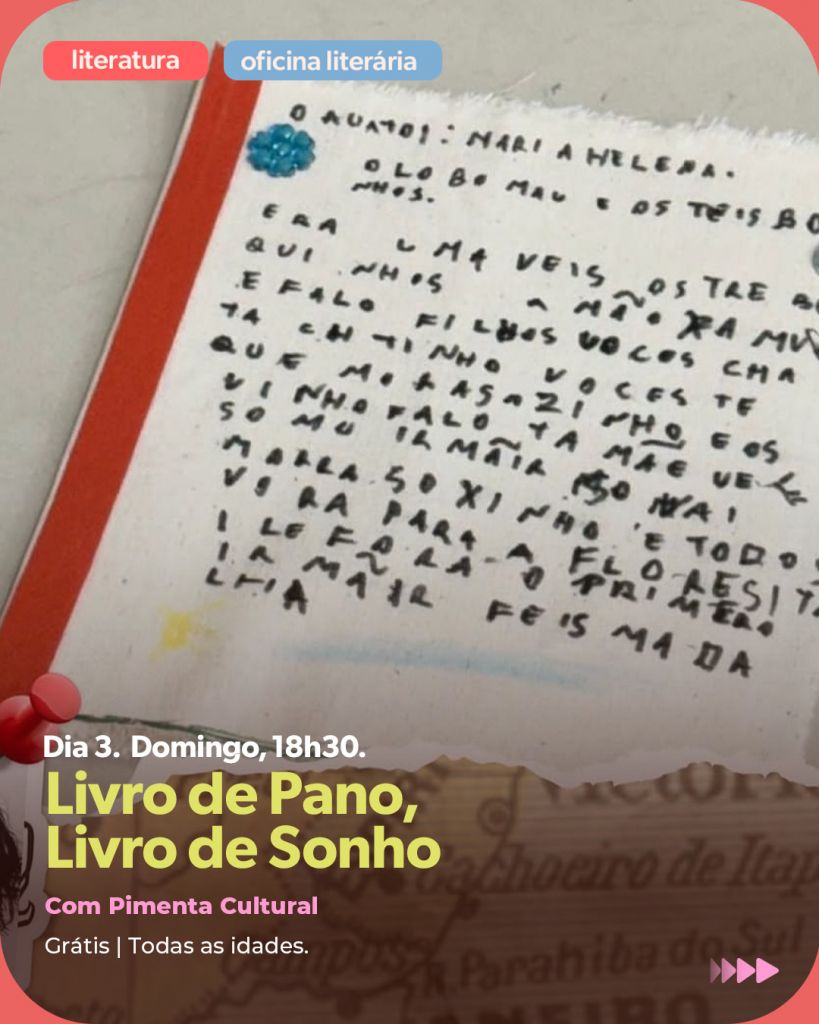 literatura
oficina literária
O AUATOI: MARIA HELENA.
O LOBO MAU E OS TEIS BO
NHOS.
ERA UMA VEIS OS TRE
QUI NHOS A MÃO
E FALO FILHOS VOCOS CHA
TA CHTINHO VOCES TE
QUE E OS
VINHO FALO TA MÃE VE
SO MU IRMÃIR VAI
MARRA SOXINHO E TODO
VO RA PARA A FLORESITA
I LE FORA O PRIMERO
IR MÃIR FEIS MADA
Dia 3. Domingo, 18h30.
Livro de Pano,
Livro de Sonho
Com Pimenta Cultural
Grátis | Todas as idades.
Cachoeiro de Itap
Campos
R. Parahiba do Sul